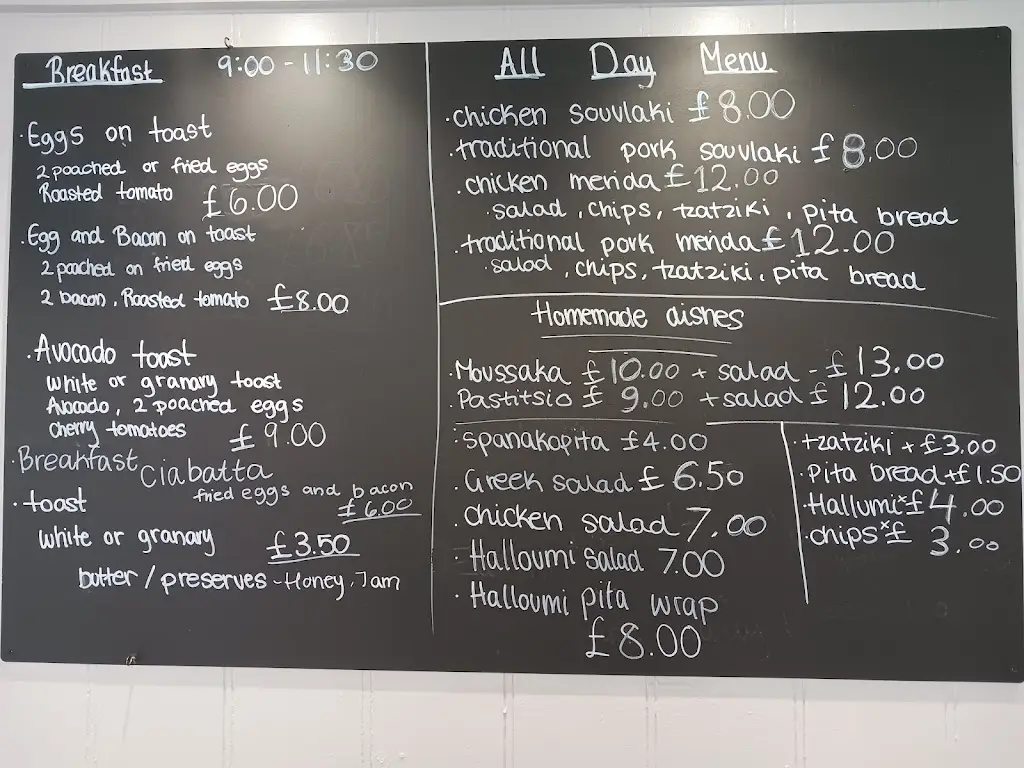 Breakfast 9:00 - 11:30
· Eggs on toast
2 poached or fried eggs
Roasted tomato £6.00
· Egg and Bacon on toast
2 poached on fried eggs
2 bacon, Roasted tomato £8.00
· Avocado toast
white or granary toast
Avocado, 2 poached eggs
cherry tomatoes £9.00
· Breakfast Ciabatta
fried eggs and bacon
£6.00
· toast
white or granary £3.50
butter / preserves - Honey, Jam
All Day Menu
· chicken souvlaki £8.00
· traditional pork souvlaki £8.00
· chicken merida £12.00
· salad, chips, tzatziki, pita bread
· traditional pork merida £12.00
· salad, chips, tzatziki, pita bread
Homemade dishes
· Moussaka £10.00 + salad - £13.00
· Pastitsio £9.00 + salad £12.00
· spanakopita £4.00
· Greek salad £6.50
· chicken salad 7.00
· Halloumi salad 7.00
· Halloumi pita wrap
£8.00
· tzatziki + £3.00
· Pita bread + £1.50
· Hallumi × £4.00
· chips × £3.00